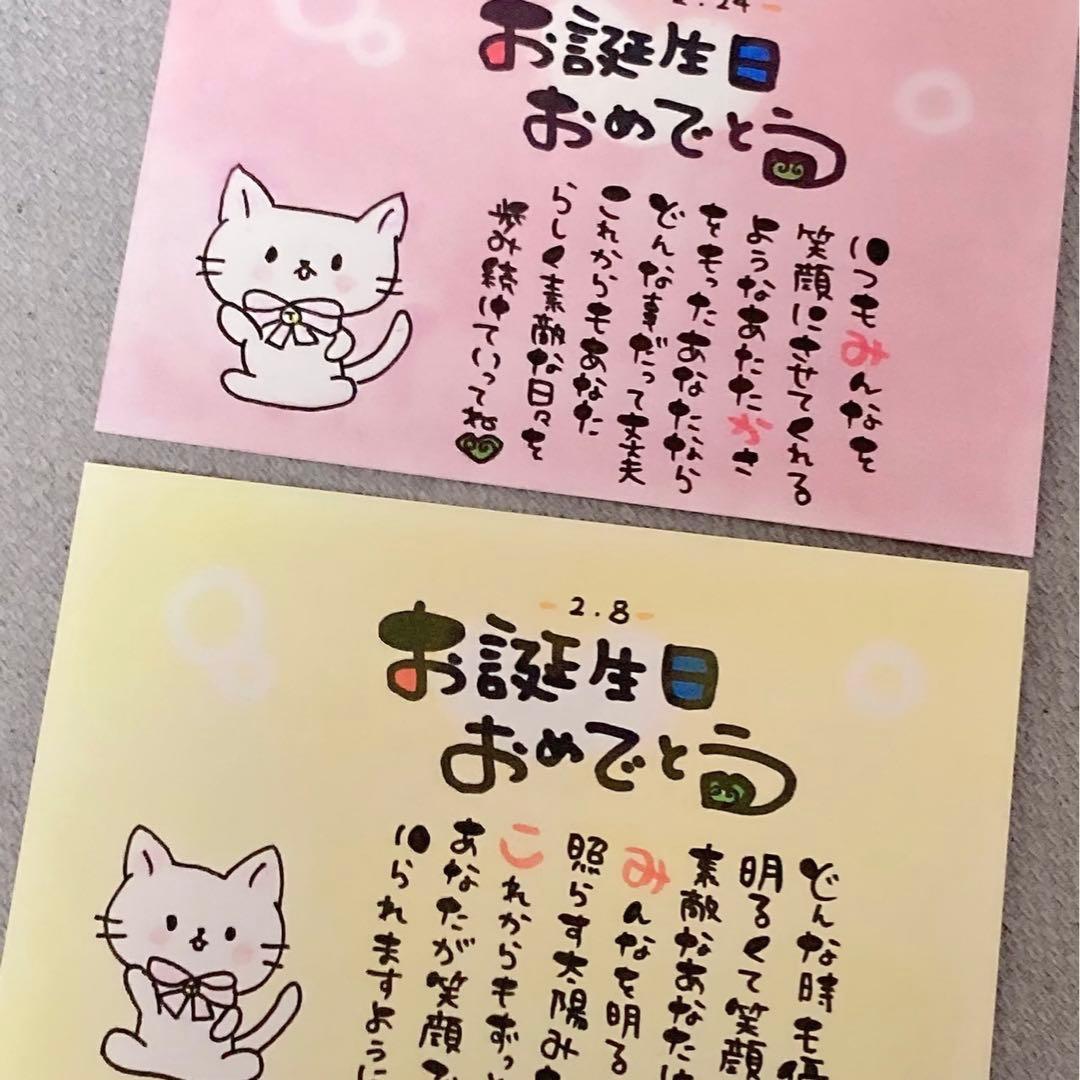 2.24
お誕生日
おめでとう
いつもみんなを
笑顔にさせてくれる
ようなあたたかさ
をもったあなたなら
どんな事だって大丈夫
これからもあなた
らしく素敵な日々を
歩み続けていってね
2.8
お誕生日
おめでとう
どんな時も優
明るくて笑顔
素敵なあなたは
みんなを明る
照らす太陽み
これからもずっと
あなたが笑顔で
いられますように